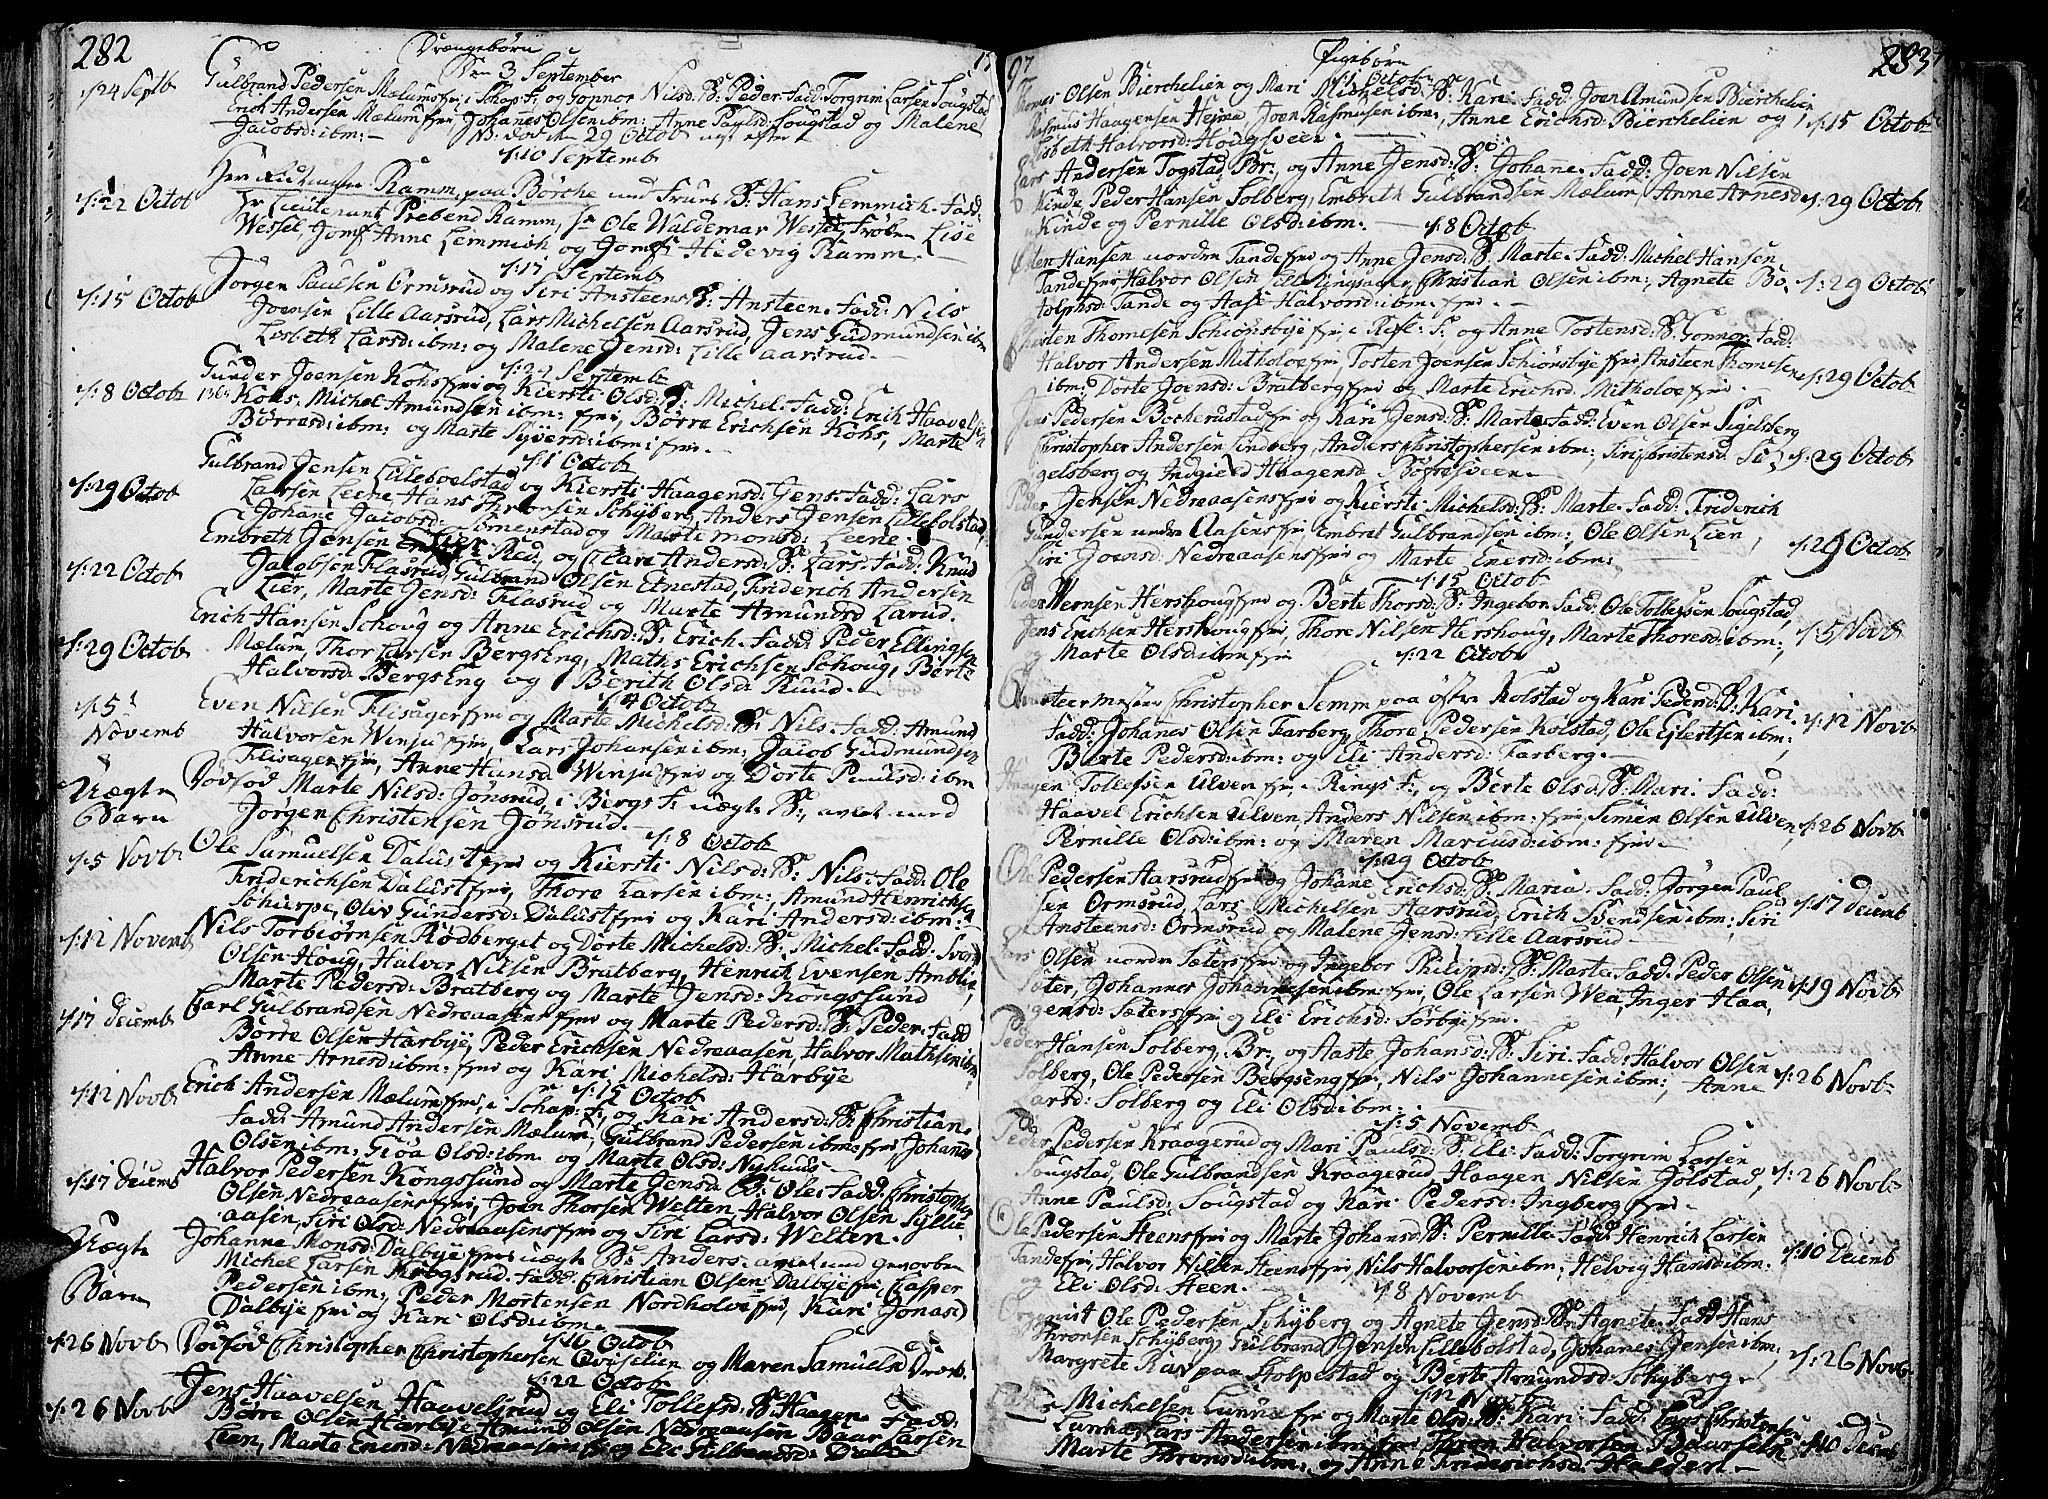 282
Drængebörn
Den 3 September
17
Gulbrand Pedersen Mælumsfrie i Schap: F: og Gonnor Nilsd: B: Peder. Fadd: Torgrim Larsen Sougstad
124 Septb
Erich Andersen Mælum frie Johanes Olsen ibm: Anne Paulsd: Sougstad og Malene
Jacobsd: ibm:
29 Octob
10 Septemb
Ramm paa Börche med Frues B: Hans Lemmich. Fadd:
22 Octob
Hr Lieutenant Prebend Ramm, Hr Ole Waldemar Wessel, Fröken Lise
Wessel, Jomf: Anne Lemmich og Jomf: Hedevig Ramm.
17 Septemb
Jörgen Paulsen Ormsrud og Siri Ansteens B: Ansteen. Fadd: Nils
15 Octob
Joensen Lille Aarsrud, Lars Michelsen Aarsrud, Jens Gudmundsen ibm
Lisbeth Larsd: ibm: og Malene Jensd: Lille Aarsrud.
24 Septemb
Gunder Joensen Kohsfrie og Kiersti Olsd: B: Michel. Fadd: Erik Haavelsen
8 Octob
Kohs, Michel Amundsen ibm: frie, Börre Erichsen Kohs, Marte
Börresd: ibm: og Marte Syversd: ibm: frie.
1 Octob
Gulbrand Jensen Lilleboelstad og Kiersti Haagensd: Jens. Fadd: Lars
29 Octob
Larsen Leene Hans Thronsen Schyberg, Anders Jensen Lillebolstad,
Johane Jacobsd: Simenstad og Marte Monsd: Leene.
Embreth Jensen Rud og Clare Andersd: B: Lars. Fadd: Knud
22 Octob
Jacobsen Flasrud, Gulbrand Olsen Enestad, Friderich Andersen
Lier, Marte Jensd: Flasrud og Marte Amundsd Larud.
Erich Hansen Schoug og Anne Erichsd: B: Erich. Fadd: Peder Ellingsen
29 Octob
Mælum, Thor Larsen BergsEng, Maths Erichsen Schoug, Berte
Halvorsd: BergsEng og Berith Olsd: Ruud.
4 Octob
Even Nilsen Flisagerfrie og Marte Michelsd: B: Nils. Fadd: Amund
5
Novemb
Halvorsen Winju frie, Lars Johansen ibm, Jacob Gudmundsen
Flisager frie, Anne Hansd: Winju frie og Dorte Paulsd: ibm
Uægte
Barn
Dödfød Marte Nilsd: Jönsrud, i Bergs F: uægte B:, avlet med
Jörgen Christensen Jönsrud.
8 Octob
5 Novb
Ole Samuelsen Dalust frie og Kiersti Nilsd: B: Nils. Fadd: Ole
Friderichsen Dalust frie, Thore Larsen ibm:, Amund Henrichsen
Schierpe, Oliv Gundersd: Dalust frie og Kari Andersd: ibm:
12 Novemb
Nils Torbiörnsen Rödberget og Dorte Michelsd: B: Michel. Fadd: Svend
Olsen Houg, Halvor Nilsen Bratberg, Henrich Evensen Amblie,
Marte Pedersd: Bratberg og Marte Jensd: Kongssund
17 decemb
Carl Gulbrandsen Nedreaasen frie og Marte Pedersd: B: Peder. Fadd
Börre Olsen Harbye, Peder Erichsen Nedreaasen, Halvor Mathsen ibm:
Anne Arnesd: ibm: frie og Kari Michelsd: Harbye
15 Octob
12 Novb
Erich Andersen Mælum frie, i Schap: F:, og Kari Andersd: B: Christian.
Fadd: Amund Andersen Mælum, Gulbrand Pedersen ibm: frie, Johanes
Olsen ibm: Gioa Olsd: ibm og Marte Olsd: Nyhuus
17 decemb
Halvor Pedersen Kongssund og Marte Jensd: B: Ole. Fadd: Christopher
Olsen Nedreaasens frie, Joen Thorsen Welten, Halvor Olsen Syllie-
aasen, Siri Olsd: Nedreaasens frie og Siri Larsd: Welten.
Uægte
Barn
Johanne Monsd: Dalbye frie uægte B: Anders. avlet med gevorben
Michel Larsen Krogsrud. Fadd: Christian Olsen Dalbye frie, Casper
Pedersen ibm:, Peder Mortensen Nordholve frie, Kari Jonasd
Dalbye frie og Kari Olsd: ibm.
16 Octob
26 Novb
Dödfød Christopher Christophersen Qviselien og Maren Samuelsd
22 Octob
26 Novb
Jens Haavelsen Haavelsrud og Eli Tollefsd: B: Haagen. Fadd:
Börre Olsen Harbye Amund Olsen Nedreaasen Baar Larsen
Lien, Marte Enersd: Nedreaasen frie og Eli Gulbrandsd:
97
283
Pigebörn
1 Octob
Thomes Olsen Bierchelien og Mari Michelsd: B: Kari. Fadd: Joen Amundsen Bierchelien
Rasmus Haagensen Hejme Joen Rasmusen ibm:, Anne Erichsd: Bierchelien og
15 Octob
Lisbeth Halvorsd: Hougsveen
Lars Andersen Togstad, Br:, og Anne Jensd: B: Johane. Fadd: Joen Nilsen
Kinde Peder Hansen Solberg, Embreth Gulbrandsen Mælum, Anne Arnesd
29 Octob
Kinde og Pernille Olsd: ibm.
8 Octob
Østen Hansen nordre Tande frie og Anne Jensd: B: Marte. Fadd: Michel Hansen
Tande frie Halvor Olsen Ellingsager, Christian Olsen ibm:, Agnete Bo,
29 Octob
tolphsd: Tande og Aase Halvorsd: ibm. frie.
Thomesen Schiönsbye frie i Ref: F: og Anne Tostensd: B: Gonnor. Fadd:
Halvor Andersen Mitholoe frie Tosten Joensen Schiönsbye frie, Ansteen Thomesen
29 Octob
ibm:, Dorte Joensd: Bratberg frie og Marte Erichsd: Mitholoe frie.
Jens Pedersen Bocherustad frie og Kari Jensd: B: Marte. Fadd: Even Olsen Sigelsberg
Christopher Andersen Lindberg, Anders Christophersen ibm:, Siri Christensd: Si,
29 Octob
gelsberg og Indgierd Haagensd:
Peder Jensen Nedreaasens frie og Kiersti Michelsd: B: Marte. Fadd: Friderich
Gundersen nedre Aasens frie, Embret Gulbrandsen ibm:, Ole Olsen Lien,
29 Octob
Siri Joensd: Nedreaasens frie og Marte Enersd: ibm:
15 Octob
Peder HersHoug frie og Berte Thorsd: B: Ingebor. Fadd: Ole Tollefsen Sougstad,
Jens Erichsen HersHoug frie, Thore Nilsen HersHoug, Marte Thoresd: ibm:,
5 Novb
og Marte Olsd: ibm frie
22 Octob
Christopher Semm paa østre Kolstad og Kari Pedersd: B: Kari.
Fadd: Johanes Olsen Farberg, Thore Pedersen Kolstad, Ole Eylertsen ibm:
12 Novb
Berte Pedersd: ibm: og Eli Andersd: Farberg.
Haagen Tollefsen Ulven frie, i Rings F:, og Berte Olsd: B: Mari. Fadd:
Haavel Erichsen Ulven, Anders Nilsen ibm: frie, Simen Olsen Ulven,
26 Novb
Pernille Olsd: ibm: og Maren Mariusd: ibm: frie.
29 Octob
Ole Pedersen Aarsrud frie og Johane Erichsd: B: Maria. Fadd: Jörgen Paul
sen Ormsrud, Lars Michelsen Aarsrud, Erich Svendsen ibm:, Siri
17 decemb
Ansteensd: Ormsrud og Malene Jensd: Lille Aarsrud
Lars Olsen nordre Sæters frie og Ingebor Philipsd: B: Marte. Fadd: Peder Olsen
Säter, Johannes Johannesen ibm: frie, Ole Larsen Wea, Inger Haa,
19 Novb
gensd: Sæters frie og Eli Erichsd: Sörbye frie.
Peder Hansen Solberg, Br:, og Aaste Johansd: B: Siri. Fadd: Halvor Olsen
Solberg, Ole Pedersen Bergseng frie, Nils Johannesen ibm:, Anne
26 Novb
Larsd: Solberg og Eli Olsd: ibm:
5 Novemb
Peder Pedersen Kraagerud og Mari Paulsd: B: Eli. Fadd: Torgrim Larsen
Sougstad, Ole Gulbrandsen Kraagerud, Haagen Nilsen Jölstad,
26 Novb
Anne Paulsd: Sougstad og Kari Pedersd: Ingberg frie.
Ole Pedersen Steens frie og Marte Johansd: B: Pernille. Fadd: Henrich Larsen
Tande frie, Halvor Nilsen Steens frie, Nils Halvorsen ibm:, Helvig Hansd: ibm.
10 Decemb
og Eli Olsd: Steen.
8 Novemb
Ole Pedersen Schyberg og Agnete Jensd: B: Agnete. Fadd: Hans
Thronsen Schyberg, Gulbrand Jensen Lillebolstad, Johanes Jensen ibm:
26 Novb
Margrete Rav paa Stolpestad og Berte Amundsd: Schyberg.
12 Novb
Michelsen Lunne frie og Marte Olsd: B: Kari. Fadd: Lars Christensen
Lunne Lars Andersen ibm: frie Thron Halvorsen
10 Decemb
Marte Thronsd: ibm: og Anne Friderichsd: Halden.